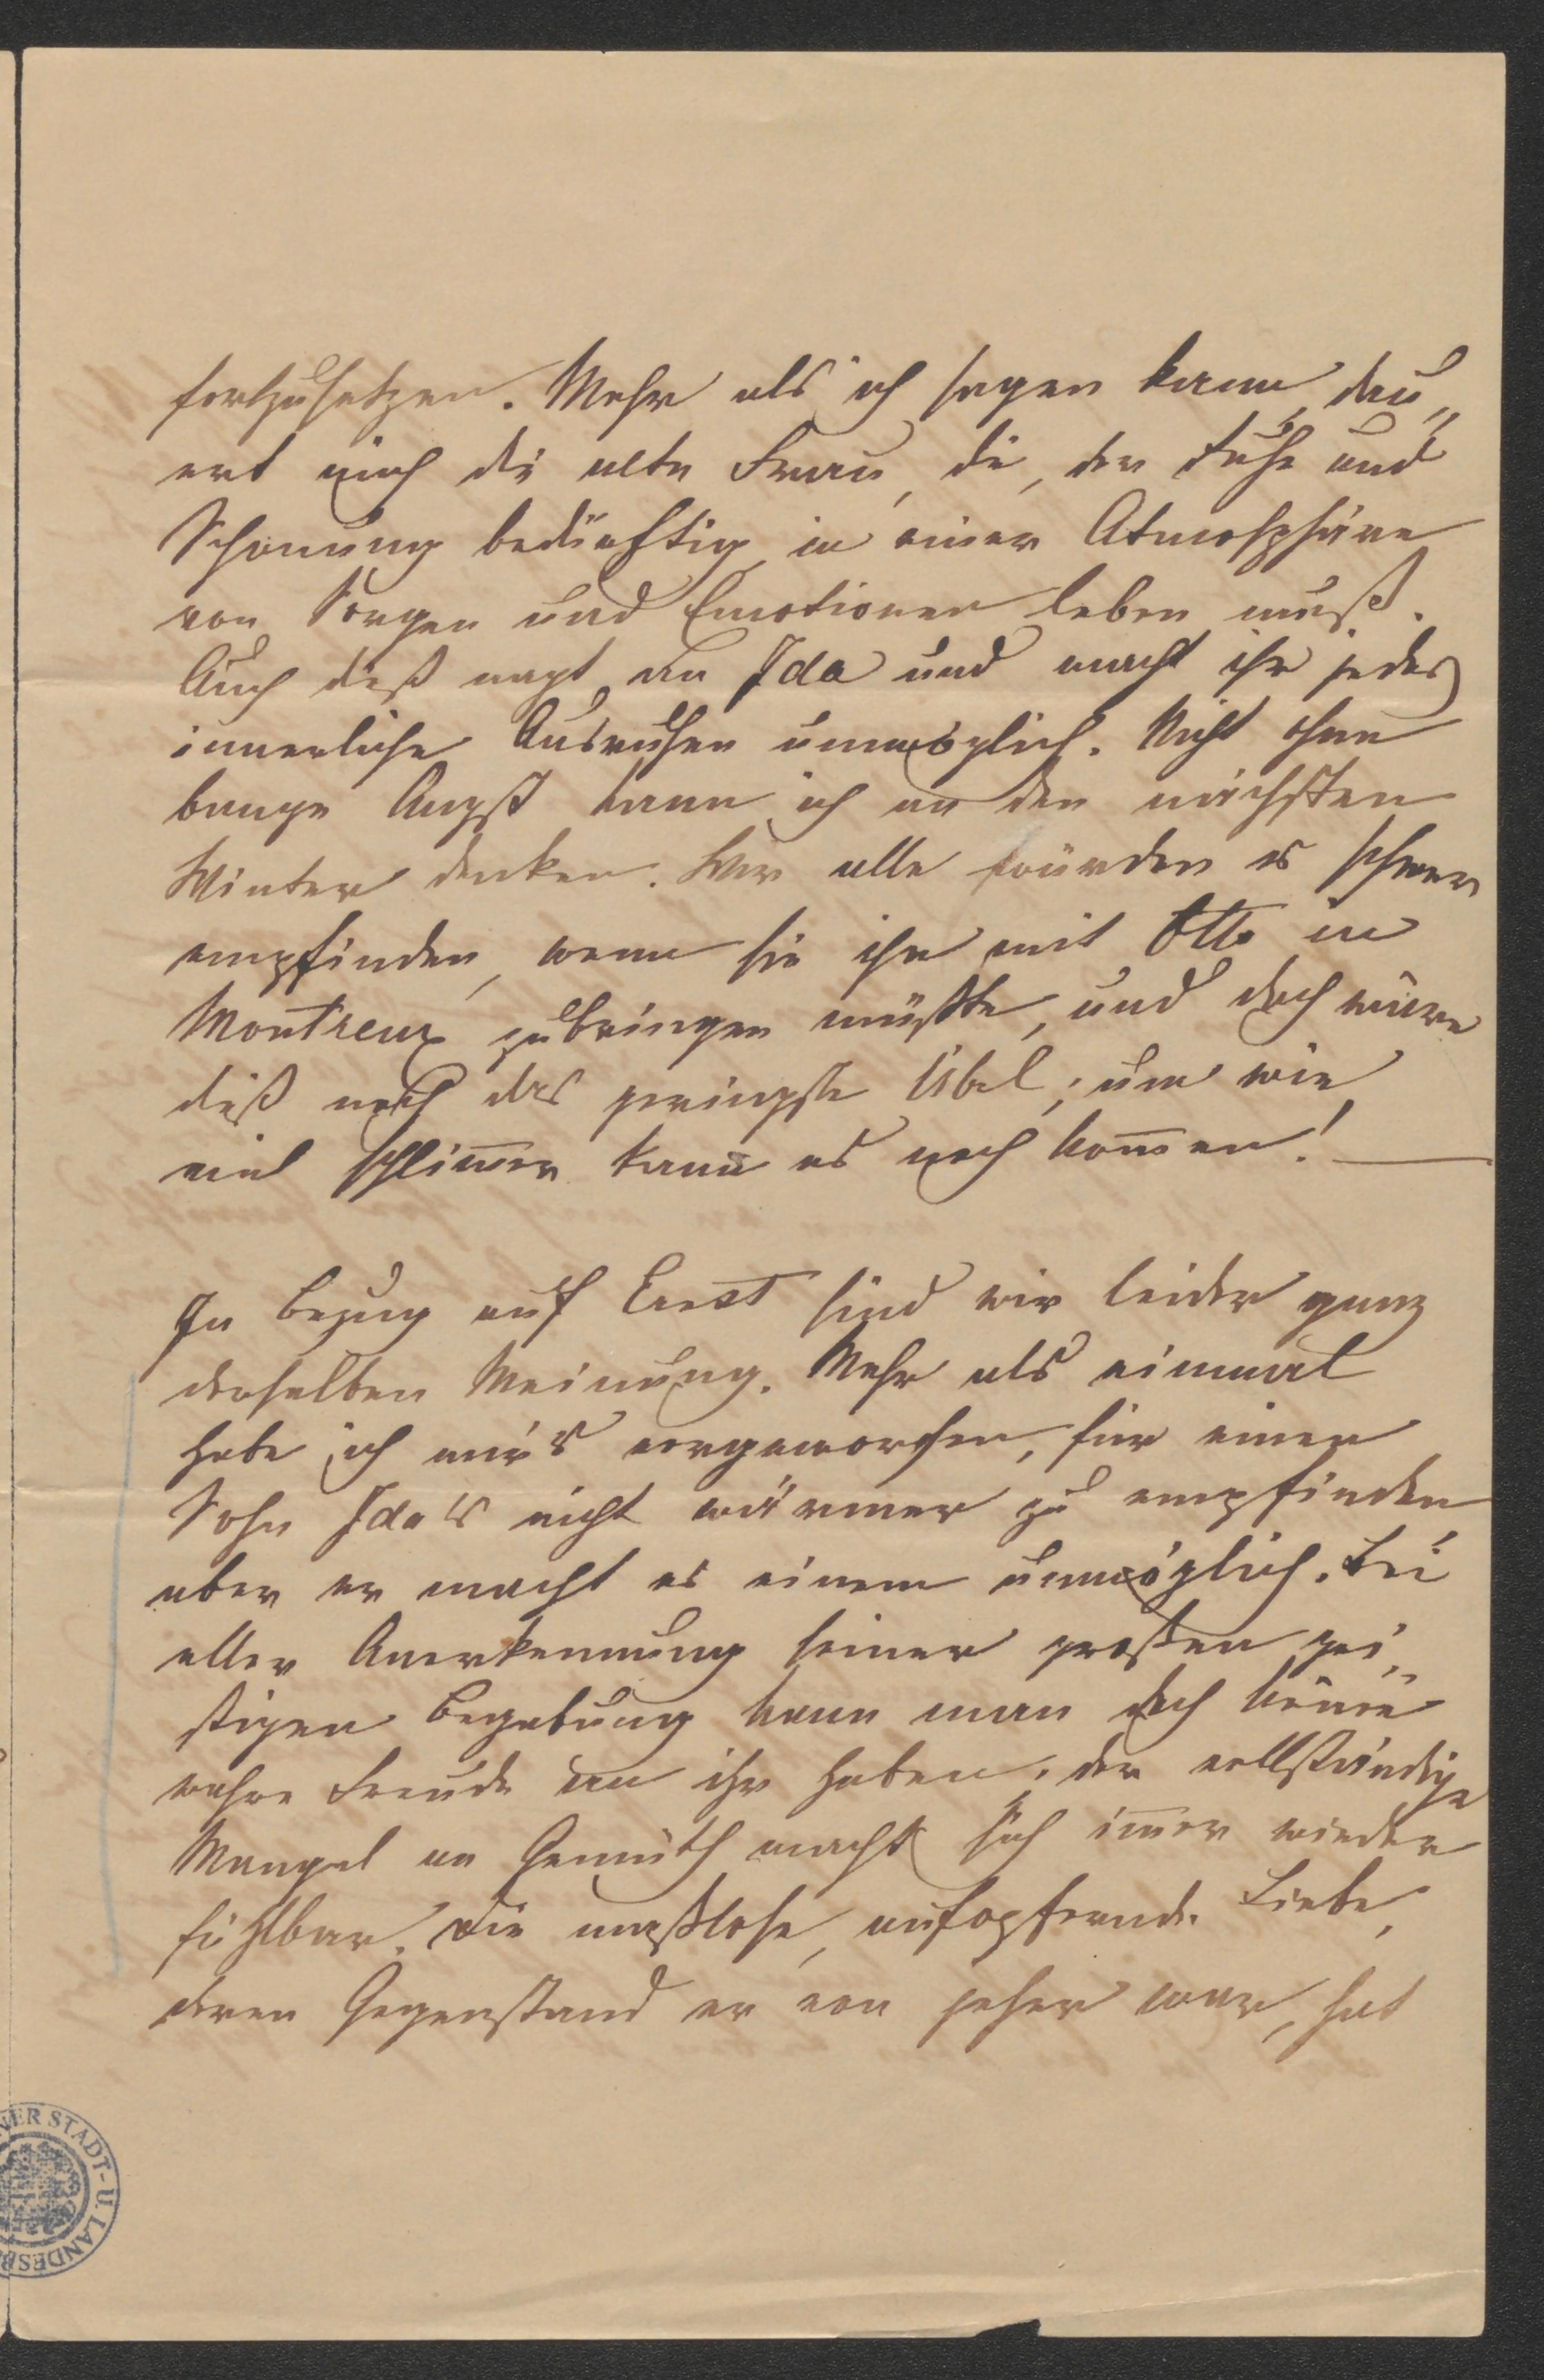 fortzusetzen. Mehr als ich sagen kann, dau„
ert mich die alte Frau, die, der Ruhe und
Schonung bedürftig, in einer Atmosphäre
von Sorgen und Emotionen leben muß.
Auch dieß nagt an Ida und macht ihr jedes
innerliche Ausruhen unmöglich. Nicht ohne
bange Angst kann ich an den nächsten
Winter denken. Wir alle würden es schwer
empfinden, wenn sie ihn mit Otto in
Montreux zubringen müßte, und doch wäre
dieß noch das geringste Übel; um wie
viel schlim̅er kann es noch kom̅en! —
In Bezug auf Ernst sind wir leider ganz
derselben Meinung. Mehr als einmal
habe ich mir's vorgeworfen, für einen
Sohn Ida's nicht wärmer zu empfinden
aber er macht es einem unmöglich. Bei
aller Anerkennung seiner großen gei„
stigen Begabung kann man doch keine
wahre Freude an ihm haben, der vollständige
Mangel an Gemüth macht sich im̅er wieder
fühlbar. Die maßlose, aufopfernde Liebe,
deren Gegenstand er von jeher war, hat
NER STADT- U. LANDESB